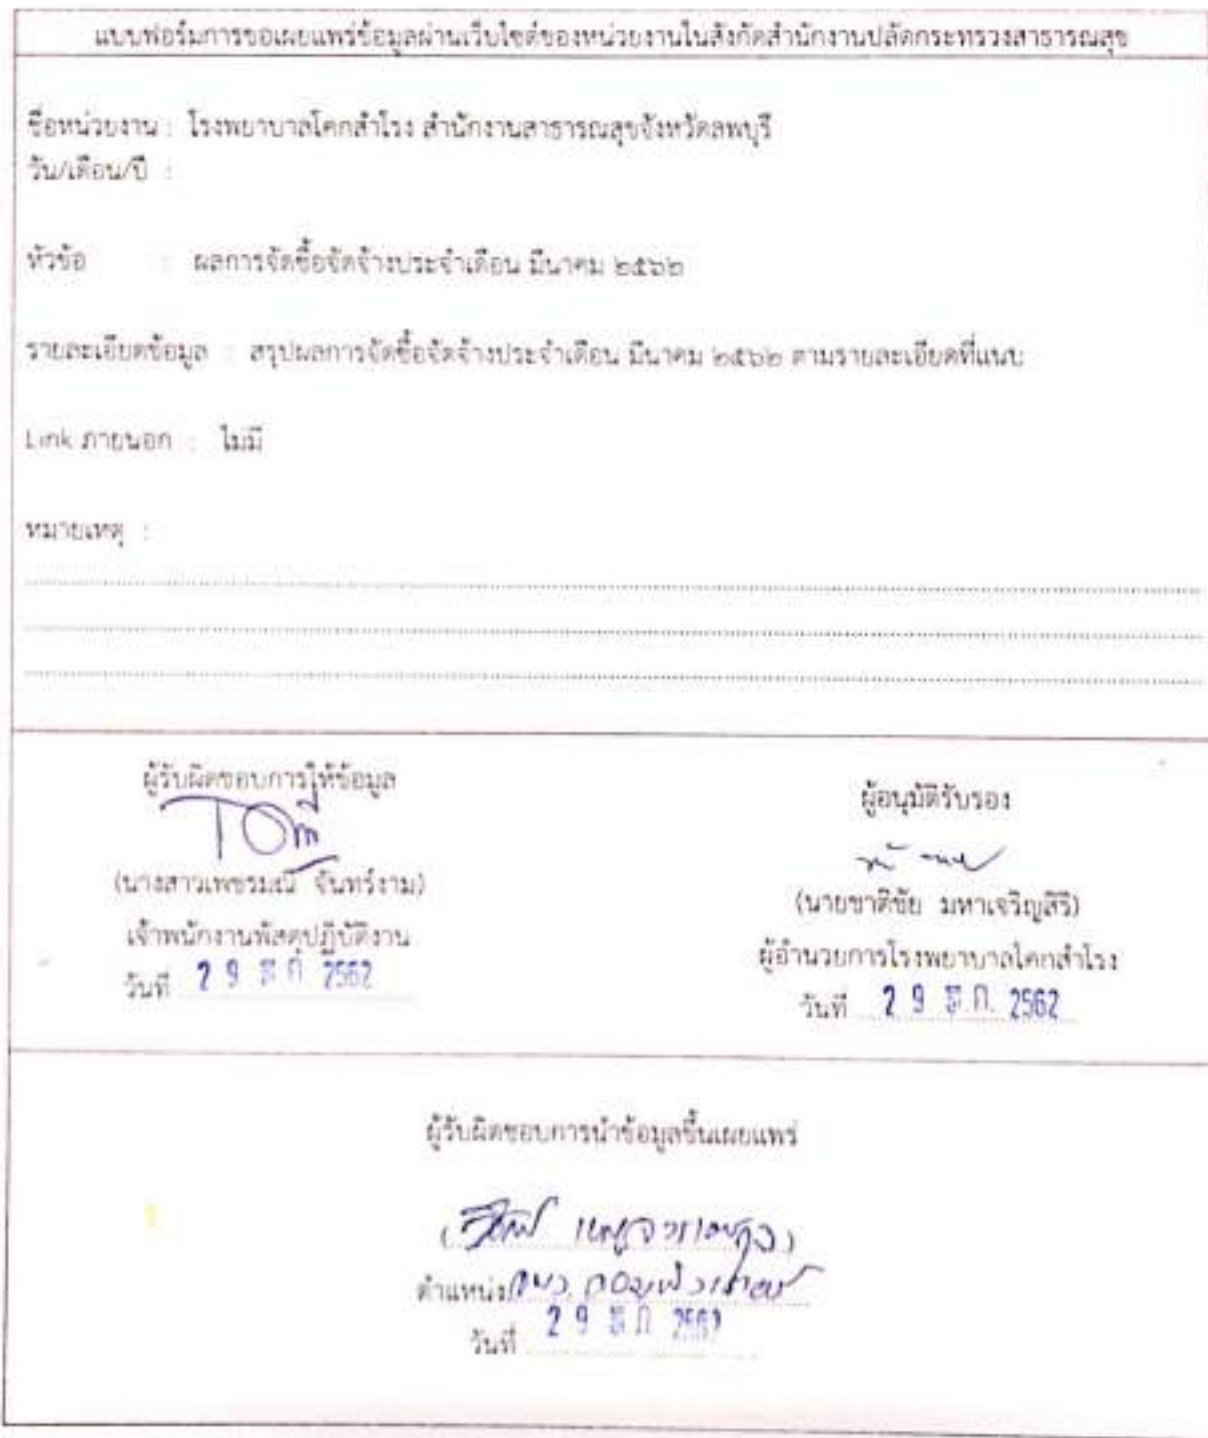 แบบฟอร์มการขอเผยแพร่ข้อมูลผ่านเว็บไซต์ของหน่วยงานในสังกัดสำนักงานปลัดกระทรวงสาธารณสุข
ชื่อหน่วยงาน : โรงพยาบาลโคกสำโรง สำนักงานสาธารณสุขจังหวัดลพบุรี
วัน/เดือน/ปี :
หัวข้อ : ผลการจัดซื้อจัดจ้างประจำเดือน มีนาคม ๒๕๖๒
รายละเอียดข้อมูล : สรุปผลการจัดซื้อจัดจ้างประจำเดือน มีนาคม ๒๕๖๒ ตามรายละเอียดที่แนบ
Link ภายนอก : ไม่มี
หมายเหตุ :
ผู้รับผิดชอบการให้ข้อมูล
(นางสาวเพชรมณี จันทร์งาม)
เจ้าพนักงานพัสดุปฏิบัติงาน
วันที่ 29 พ.ค. 2562
ผู้อนุมัติรับรอง
(นายชาติชัย มหาเจริญสิริ)
ผู้อำนวยการโรงพยาบาลโคกสำโรง
วันที่ 29 พ.ค. 2562
ผู้รับผิดชอบการนำข้อมูลขึ้นเผยแพร่
ตำแหน่ง
วันที่ 29 พ.ค. 2562